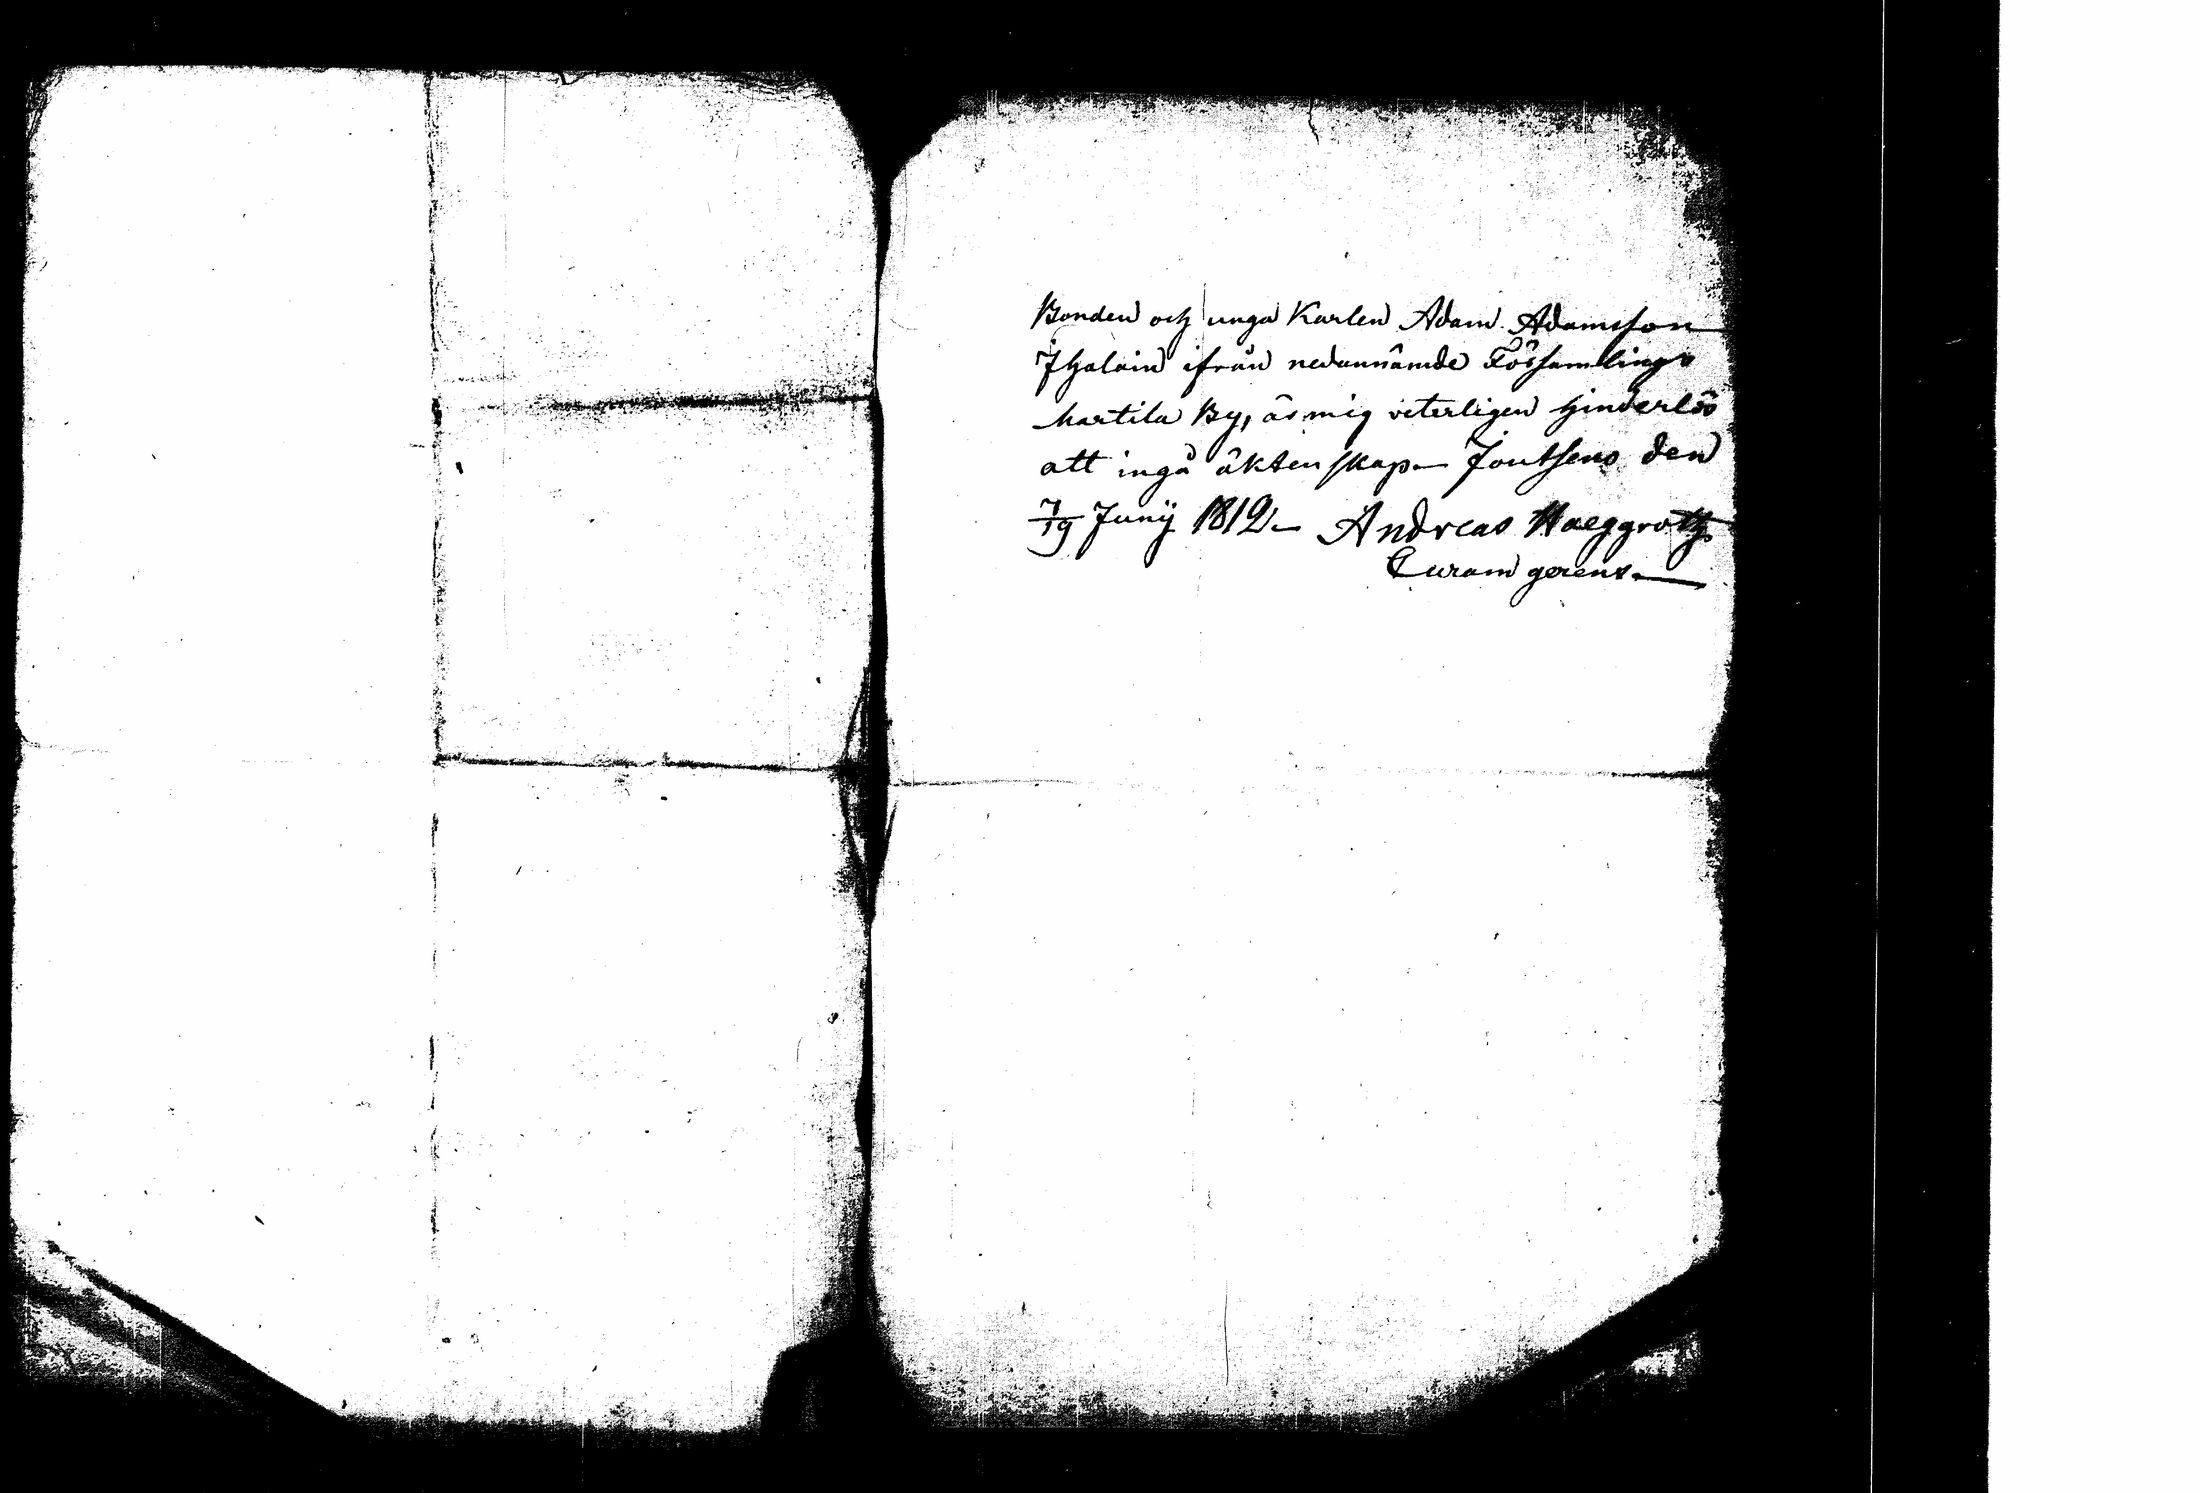 Bonden och unga Karlen Adam Adamsson
Ihalain ifrån nedannämde Församlings
Kartila By, är mig veterligen hinderlös
att ingå äktenskap. Joutseno den
7/19 Junij 1812. Andreas Haeggroth
Curam gerens.